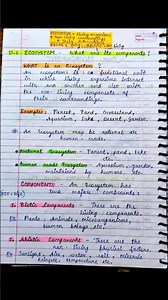 ECOSYSTEM - What are its components?
WHAT is an Ecosystem?
An ecosystem is a functional unit
in which living organisms interact
with one another and also with
the non living components of
their surroundings.
Examples: Forest, Pond, Grassland,
Aquarium, lake, desert, garden.
An Ecosystem may be natural or
human made.
Natural Ecosystem: Forest, pond, lake
etc.
Human made Ecosystem: Aquarium, garden,
maintained by humans, etc.
COMPONENTS: An Ecosystem has
two major components:
1. Biotic Components: These are the
living components.
Ex: Plants, Animals, microorganisms,
human beings, etc.
2. Abiotic Components: These are the
non living physical
Ex: Sunlight, Air, water, soil, minerals
Rainfall, temperature etc.